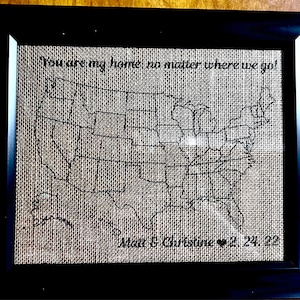 You are my home no matter where we go!
Matt & Christine ♥ 2. 24. 22